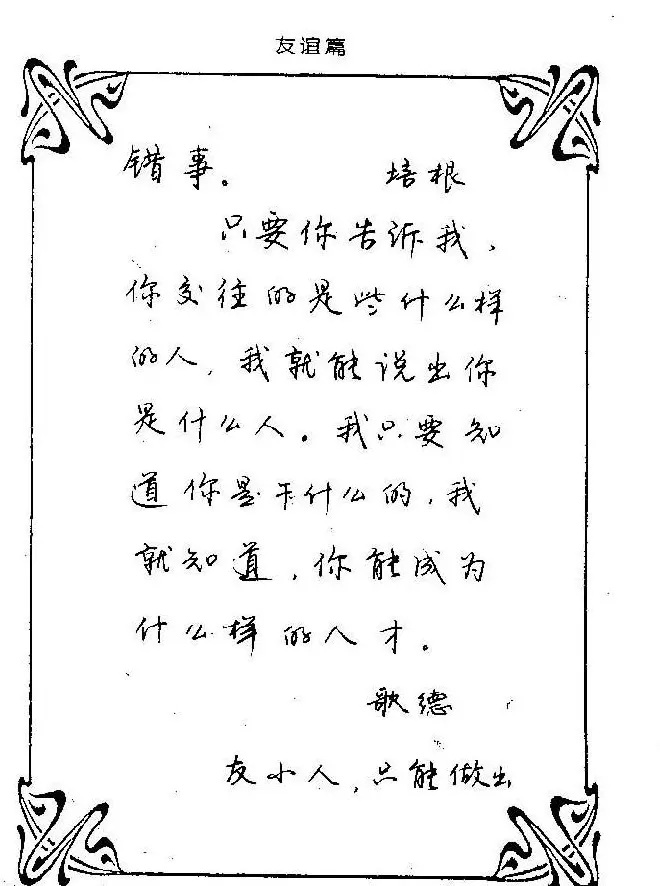 友谊篇
错事。 培根
只要你告诉我，
你交往的是些什么样
的人，我就能说出你
是什么人。我只要知
道你是干什么的，我
就知道，你能成为
什么样的人才。
歌德
友小人，只能做出